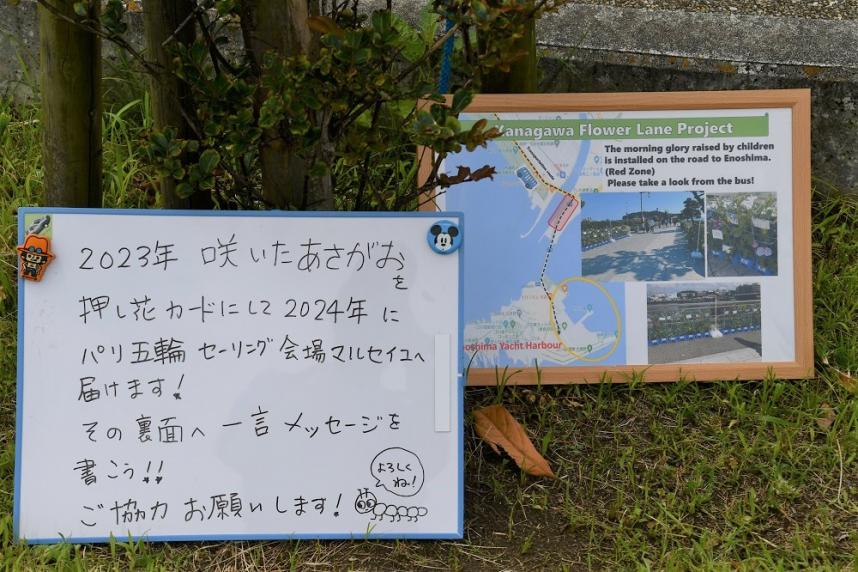 2023年 咲いたあさがおを
押し花カードにして2024年に
パリ五輪 セーリング会場マルセイユへ
届けます!
その裏面へ 一言メッセージを
書こう!!
ご協力 お願いします!
よろしく
ね!
anagawa Flower Lane Project
The morning glory raised by children
is installed on the road to Enoshima.
(Red Zone)
Please take a look from the bus!
oshima Yacht Harbour